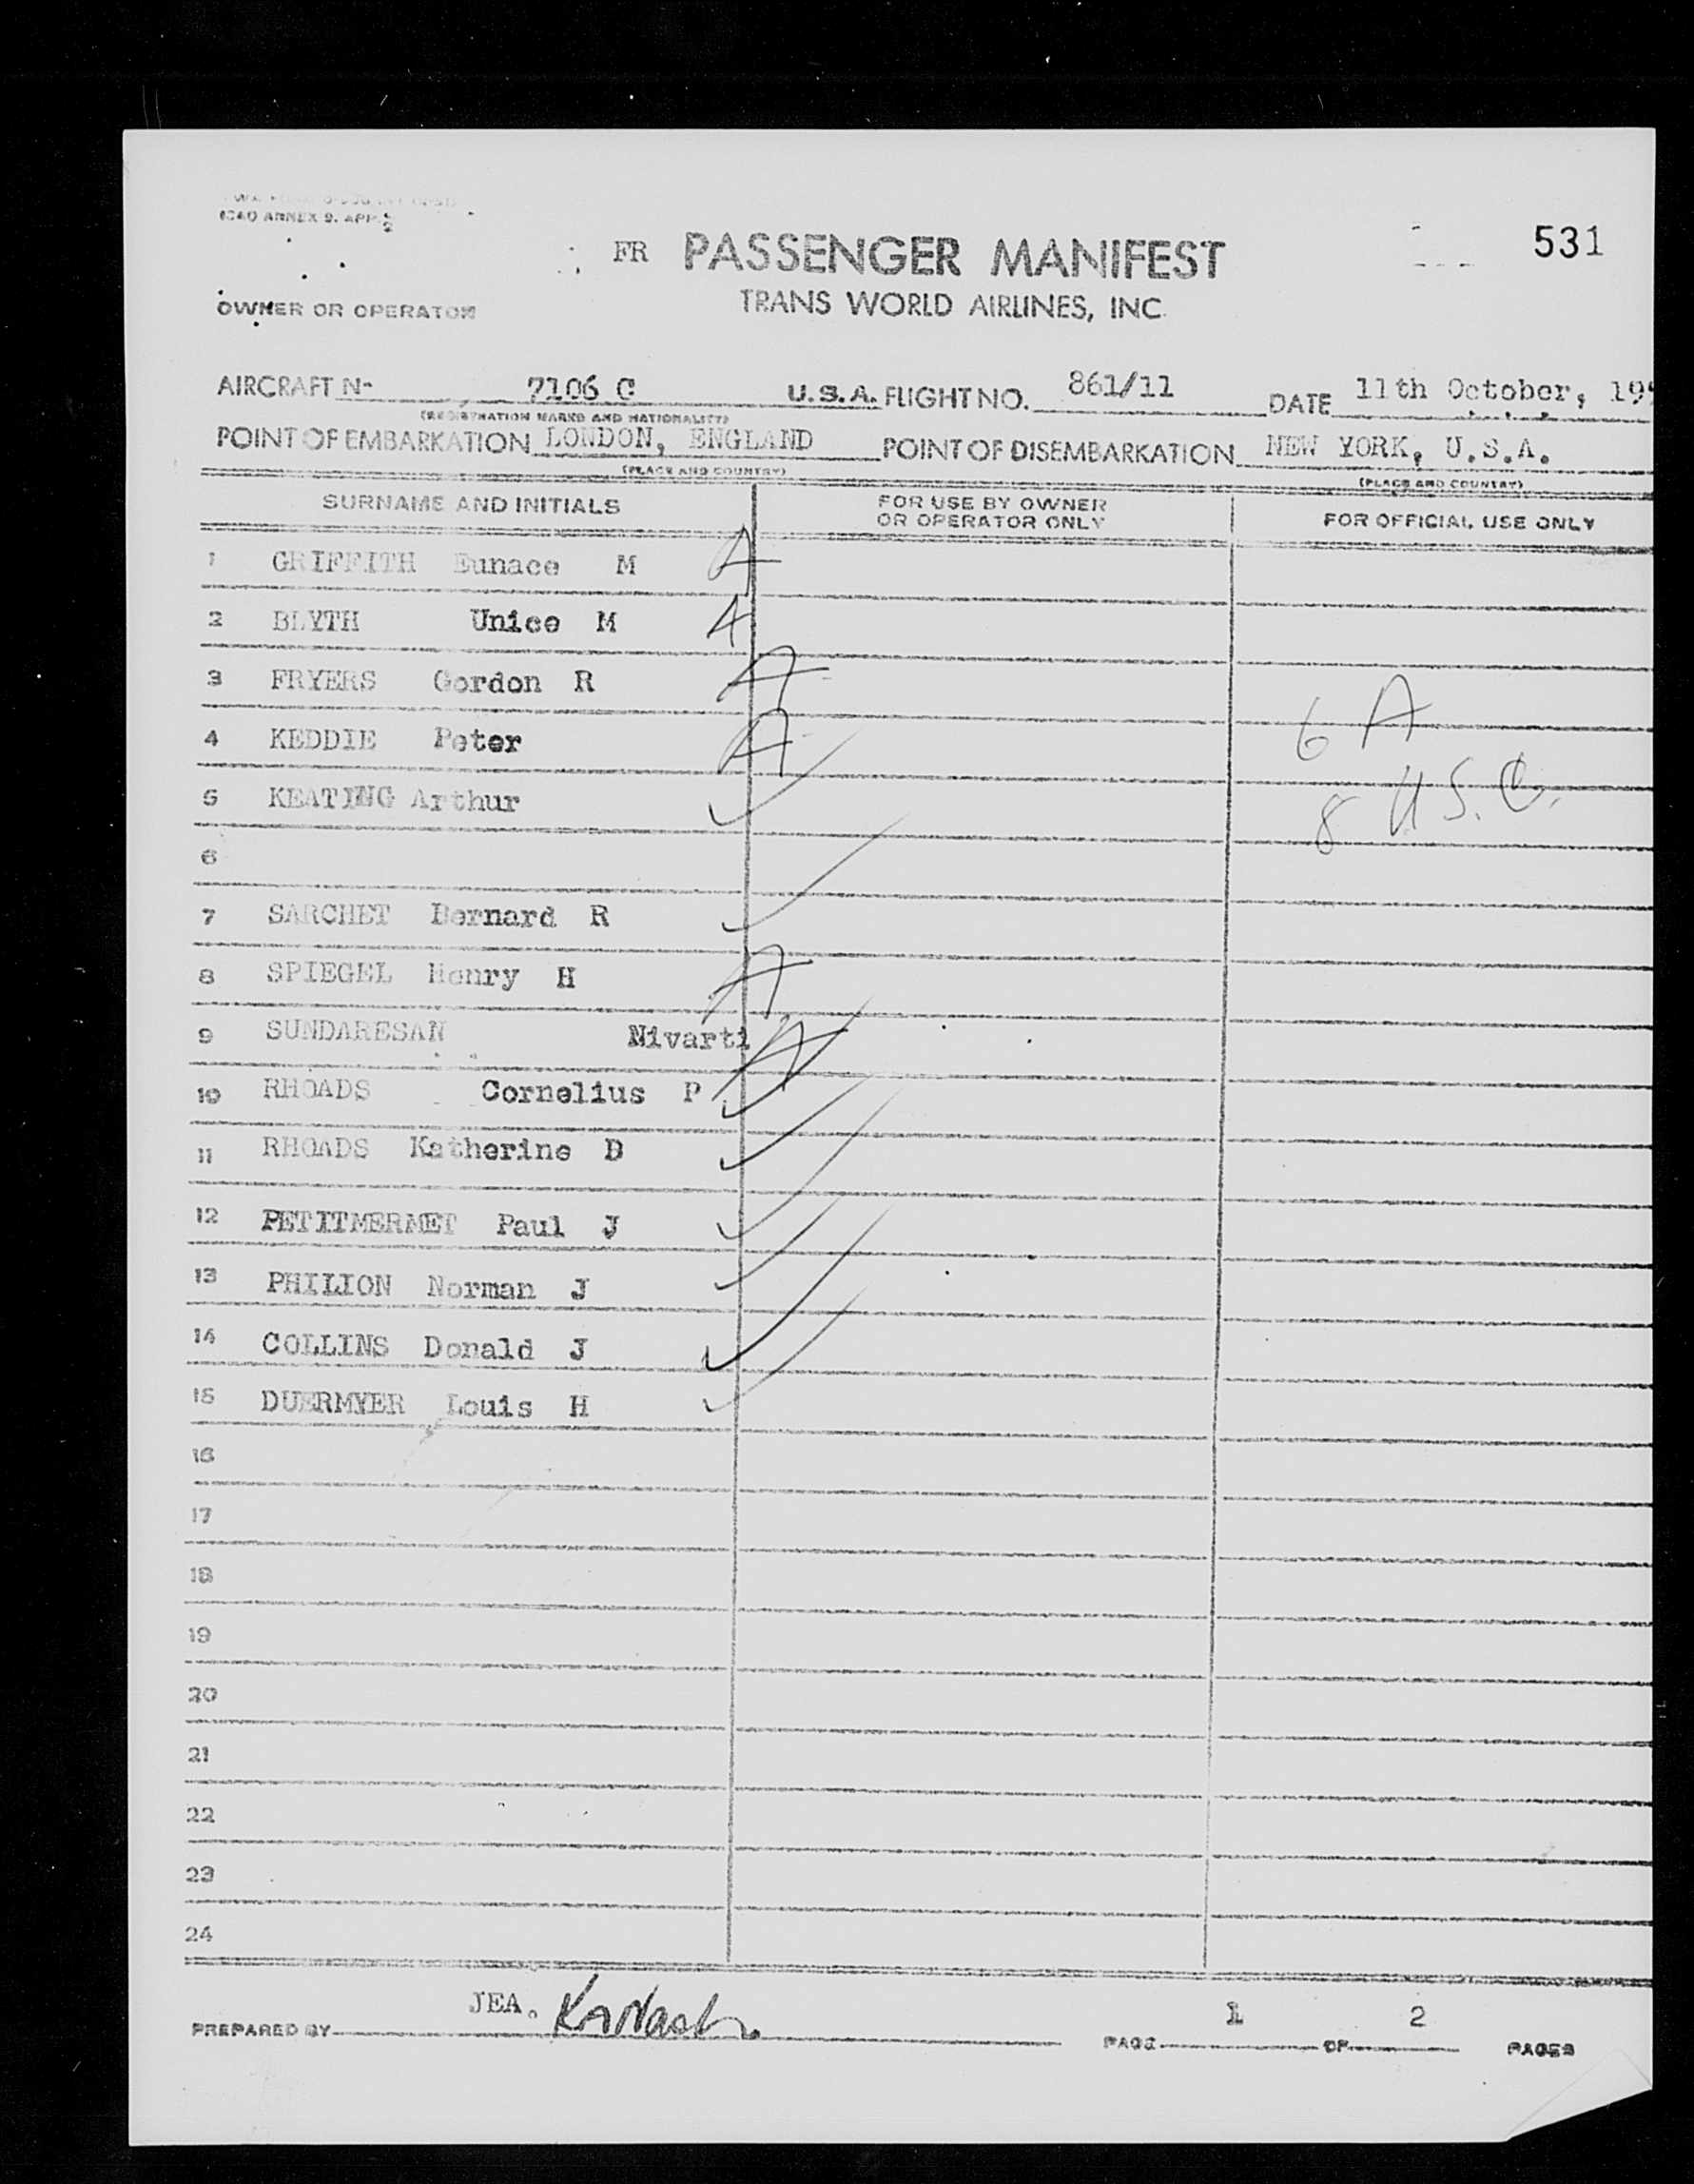 ICAO ANNEX 9. APP. 2
FR PASSENGER MANIFEST 531
OWNER OR OPERATOR TRANS WORLD AIRLINES, INC.
AIRCRAFT Nº 7106 C U.S.A. FLIGHT NO. 861/11 DATE 11th October, 19
(REGISTRATION MARKS AND NATIONALITY)
POINT OF EMBARKATION LONDON, ENGLAND POINT OF DISEMBARKATION NEW YORK, U.S.A.
(PLACE AND COUNTRY) (PLACE AND COUNTRY)
SURNAME AND INITIALS FOR USE BY OWNER OR OPERATOR ONLY FOR OFFICIAL USE ONLY
1 GRIFFITH Eunace M A
2 BLYTH Unice M A
3 FRYERS Gordon R A
4 KEDDIE Peter A 6 A
5 KEATING Arthur ✓ 8 U.S.C.
6
7 SARCHET Bernard R ✓
8 SPIEGEL Henry H A
9 SUNDARESAN Nivarti A
10 RHOADS Cornelius P ✓
11 RHOADS Katherine B ✓
12 PETITMERMET Paul J ✓
13 PHILION Norman J ✓
14 COLLINS Donald J ✓
15 DUERMYER Louis H ✓
16
17
18
19
20
21
22
23
24
PREPARED BY JEA. PAGE 1 OF 2 PAGES